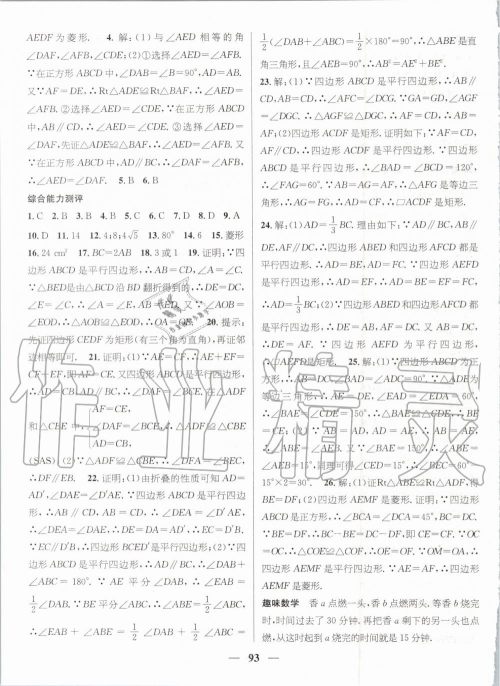 AEDF为菱形.　4. 解:(1)与∠AED 相等的角
∠DAF,∠AFB,∠CDE;(2)①选择∠AED=∠AFB.
∵在正方形 ABCD 中,∠DAB=∠B=90°,AD=AB.
又∵AF=DE,∴Rt△ADE≌Rt△BAF,∴∠AED=
∠AFB. ②选择∠AED=∠CDE,∵在正方形 ABCD
中,AB∥CD,∴∠AED=∠CDE. ③选择∠AED=
∠DAF,先证△ADE≌△BAF,∴∠AED=∠AFB. 又
∵正方形 ABCD 中,AD∥BC,∴∠DAF=∠AFB,
∴∠AED=∠DAF.　5. B　6. B
综合能力测评
1. C　2. B　3. B　4. A　5. B　6. B　7. D　8. D　9. A
10. D　11. D　12. 14　13. 80°　14. 6　15. 菱形
16. 24 cm²　17. BC=2AB　18. 3或1　19. 证明:∵四
边形 ABCD 是平行四边形,∴AB=CD,∠A=∠C.
∵△BED是由△BCD沿BD翻折得到的,∴DE=DC,
∠E=∠C,∴∠A=∠E,AB=ED. 又∵∠AOB=
∠EOD,∴△AOB≌△EOD,∴OA=OE.　20. 提示:
先证四边形 CEDF 为矩形(有三个角为直角),再证邻
边相等即可.　21. 证明:(1)∵AE=CF,∴AE+EF=
CF+EF,即AF=CE. 又四边形ABCD是平行四边形,
∴AD=CB,AD∥BC,∴∠DAF=∠BCE. 在△ADF
和△CBE 中,
AF=CE,
∠DAF=∠BCE,∴△ADF≌△CBE
AD=CB,
(SAS) (2)∵△ADF≌△CBE,∴∠DFA=∠BEC,
∴DF∥EB.　22. 证明:(1)由折叠的性质可知 AD=
AD′,∠DAE=∠D′AE. ∵四边形ABCD是平行四边
形,∴CD∥AB,AB=CD,∴∠DEA=∠D′AE,
∴∠DEA=∠DAE,∴DE=DA=AD′,∴EC=D′B.
∵EC∥D′B,∴四边形 BCED′是平行四边形;(2)∵四
边形 ABCD 是平行四边形,∴AD∥BC,∴∠DAB+
∠ABC=180°. ∵AE平分∠DAB,∴∠EAB=
1/2∠DAB. ∵BE平分∠ABC,∴∠ABE=1/2∠ABC,
∴∠EAB+∠ABE=1/2∠DAB+1/2∠ABC=
1/2(∠DAB+∠ABC)=1/2×180°=90°,∴△ABE是直
角三角形,且∠AEB=90°,∴AB²=AE²+BE².
23. 解:(1)∵四边形 ABCD 是平行四边形,∴AB∥
CD,AB=CD,∴∠AFC=∠DCG. ∵GA=GD,∠AGF
=∠DGC. ∴△AGF≌△DGC,∴AF=CD,∴AB=
AF;(2)四边形 ACDF 是矩形. 证明如下:∵AF=CD,
AF∥CD,∴四边形 ACDF 是平行四边形. ∵四边形
ABCD 是平行四边形,∴∠BAD=∠BCD=120°,
∴∠FAG=60°. ∵AB=AG=AF,∴△AFG是等边三
角形,∴AG=GF,∴AD=CF. ∴▱ACDF是矩形.
24. 解:(1)AD=1/3BC. 理由如下:∵AD∥BC,AB∥
DE,AF∥DC,∴四边形 ABED 和四边形 AFCD 都是
平行四边形,∴AD=BE,AD=FC. ∵四边形 AEFD
是平行四边形,∴AD=EF,∴AD=BE=EF=FC,
∴AD=1/3BC;(2)∵四边形ABED和四边形AFCD都
是平行四边形,∴DE=AB,AF=DC. 又AB=DC,
∴DE=AF. ∵四边形 AEFD 是平行四边形,∴四边形
AEFD 是矩形.　25. 解:(1)∵四边形ABCD为正方
形,∴AB=DC,∠BAD=∠ADC=90°. ∵△ADE为
等边三角形,∴AE=DE,∠EAD=∠EDA=60°,
∴∠BAE=∠CDE=150°,∴△BAE≌△CDE,∴BE
=CE;(2)∵AB=AD,AD=AE,∴AB=AE,
∴∠ABE=∠AEB. ∵∠BAE=150°,∴∠ABE=
∠AEB=15°,同理可得∠CED=15°,∴∠BEC=60°-
15°×2=30°.　26. 解:(1)证△ABE≌△ADF,得
BE=DF;(2)四边形 AEMF 是菱形. 证明:∵四边形
ABCD 是正方形,∴∠BCA=∠DCA=45°,BC=DC.
∵BE=DF,∴BC-BE=DC-DF,即CE=CF. ∵OC
=OC,∴△COE≌△COF,∴OE=OF. ∵OM=OA,∴
四边形 AEMF 是平行四边形. ∵AE=AF,∴四边形
AEMF 是菱形.
趣味数学　香a点燃一头,香b点燃两头. 等香b烧完
时,时间过去了30分钟. 再把香a剩下的另一头也点
燃,从这时起到a烧完的时间就是15分钟.
93
作业精灵